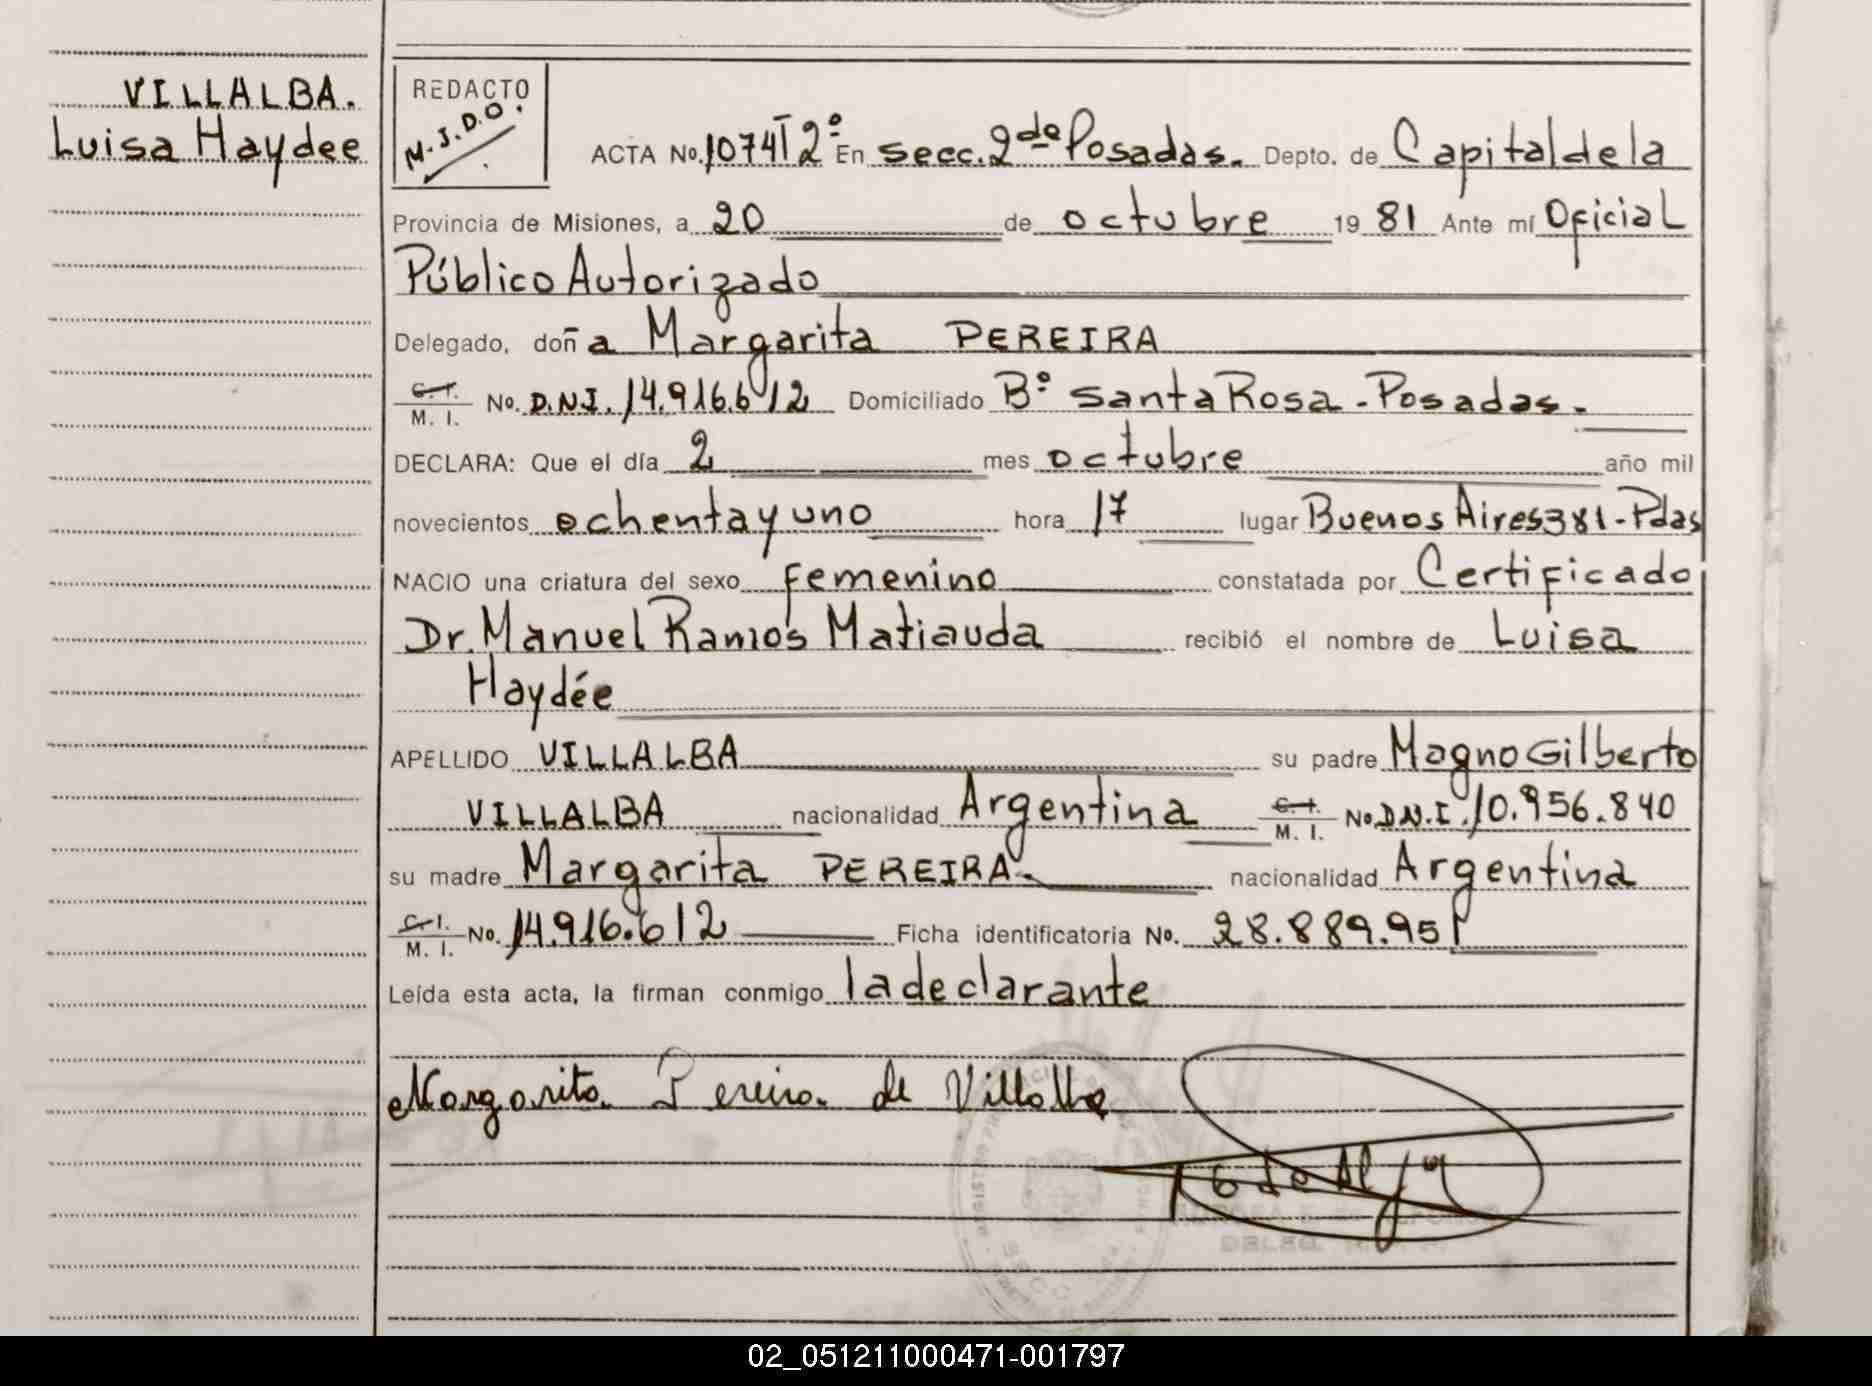 VILLALBA.
Luisa Haydee
REDACTO
M.J.D.O.
ACTA No. 1074 T 2º En secc. 2da Posadas. Depto. de Capital de la
Provincia de Misiones, a 20 de octubre 1981 Ante mí Oficial
Público Autorizado
Delegado, doña Margarita PEREIRA
C.I. M.I. No. D.N.I. 14.916.612 Domiciliado Bº Santa Rosa - Posadas.-
DECLARA: Que el día 2 mes octubre año mil
novecientos ochenta y uno hora 17 lugar Buenos Aires 381 - Pdas
NACIO una criatura del sexo femenino constatada por Certificado
Dr. Manuel Ramos Matiauda recibió el nombre de Luisa
Haydée
APELLIDO VILLALBA su padre Magno Gilberto
VILLALBA nacionalidad Argentina C.I. M.I. No D.N.I. 10.956.840
su madre Margarita PEREIRA.- nacionalidad Argentina
C.I. M.I. No. 14.916.612 Ficha identificatoria No. 28.889.951
Leída esta acta, la firman conmigo la declarante
Margarita Pereira de Villalba
02_051211000471-001797